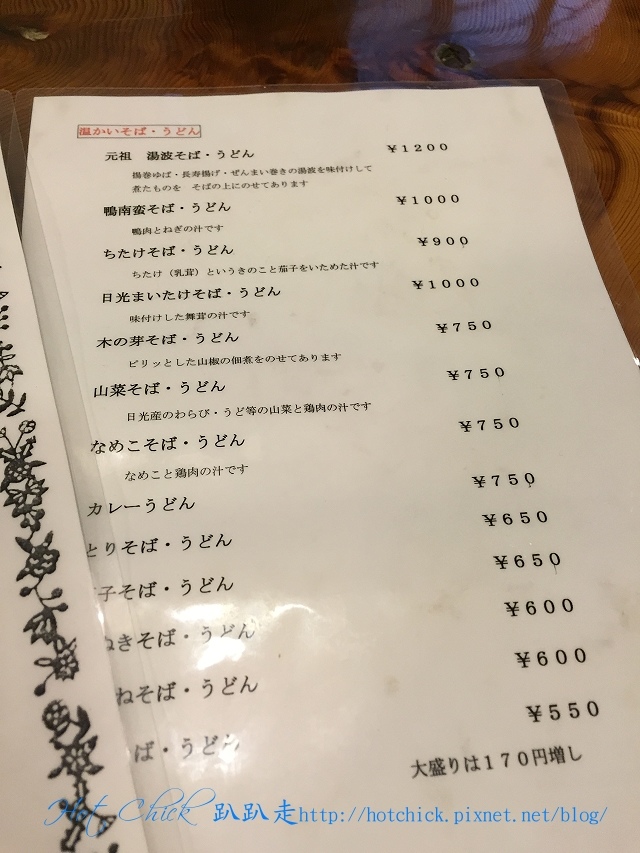 温かいそば・うどん
元祖　湯波そば・うどん ￥１２００
揚巻ゆば・長寿揚げ・ぜんまい巻きの湯波を味付けして
煮たものを　そばの上にのせてあります
鴨南蛮そば・うどん ￥１０００
鴨肉とねぎの汁です
ちたけそば・うどん ￥９００
ちたけ（乳茸）というきのこと茄子をいためた汁です
日光まいたけそば・うどん ￥１０００
味付けした舞茸の汁です
木の芽そば・うどん ￥７５０
ピリッとした山椒の佃煮をのせてあります
山菜そば・うどん ￥７５０
日光産のわらび・うど等の山菜と鶏肉の汁です
なめこそば・うどん ￥７５０
なめこと鶏肉の汁です
カレーうどん ￥７５０
とりそば・うどん ￥６５０
子そば・うどん ￥６５０
ぬきそば・うどん ￥６００
ねそば・うどん ￥６００
ば・うどん ￥５５０
大盛りは１７０円増し
Hot Chick 趴趴走http://hotchick.pixnet.net/blog/